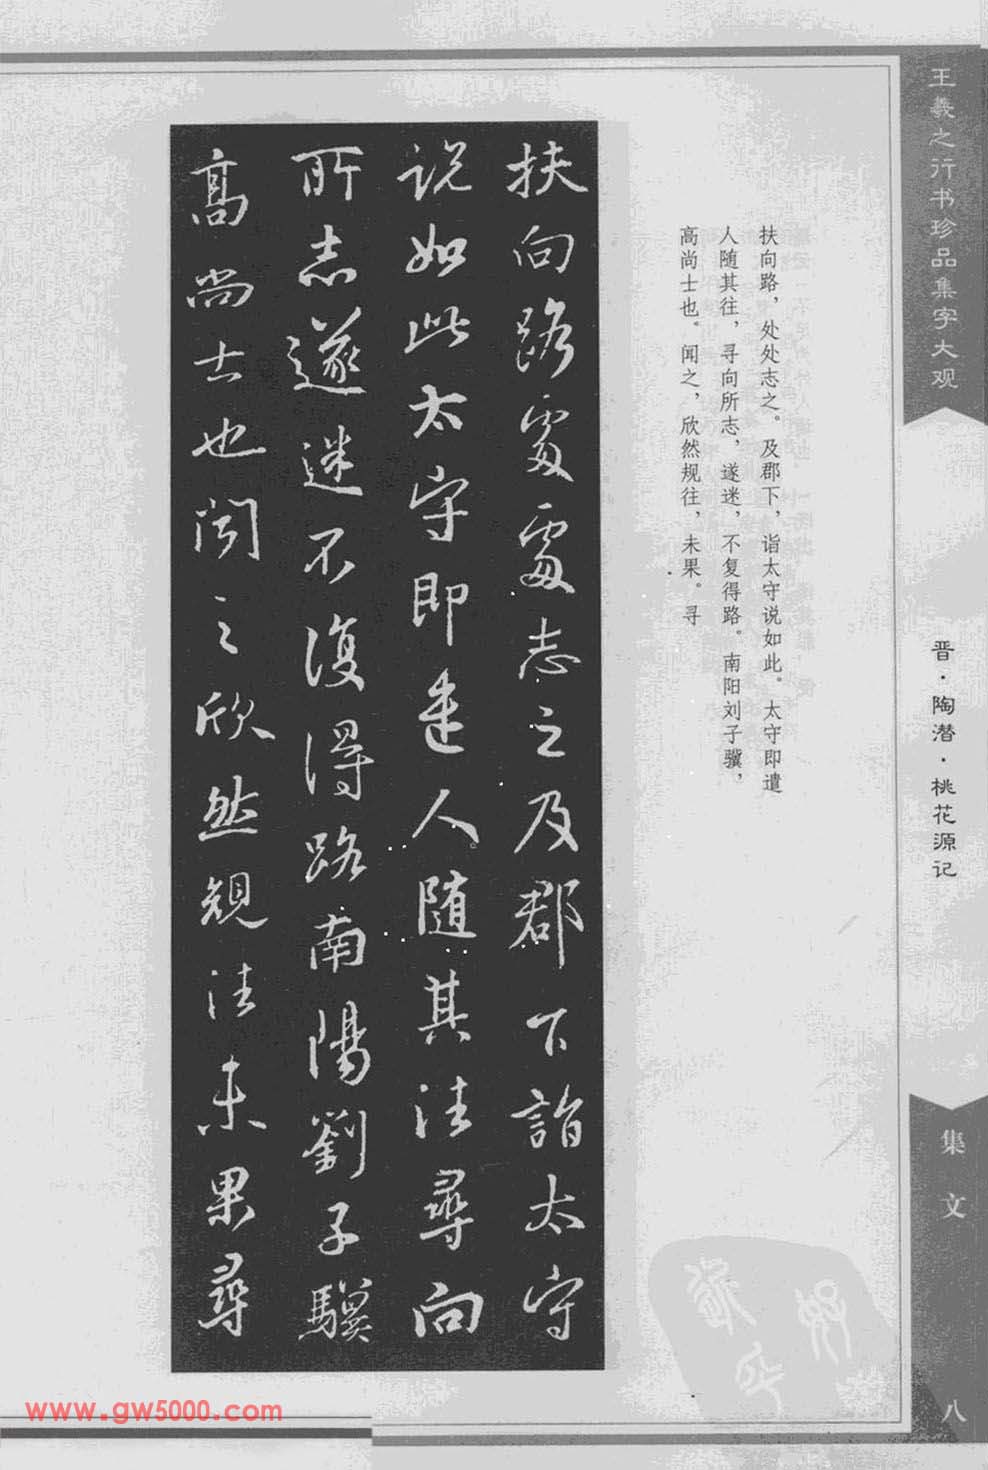 王羲之行书珍品集字大观
晋·陶潜·桃花源记
集文
八
扶向路，处处志之。及郡下，诣太守说如此。太守即遣
人随其往，寻向所志，遂迷，不复得路。南阳刘子骥，
高尚士也。闻之，欣然规往，未果。寻
扶向路處處志之及郡下詣太守
説如此太守即遣人随其往尋向
所志遂迷不復得路南陽劉子驥
高尚士也聞之欣然規往未果尋
www.gw5000.com